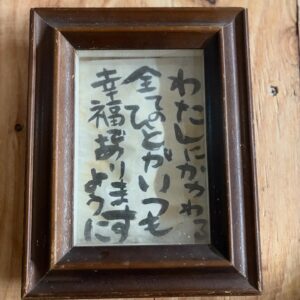 わたしにかかわる
全てのひとがいつも
幸福でありますように